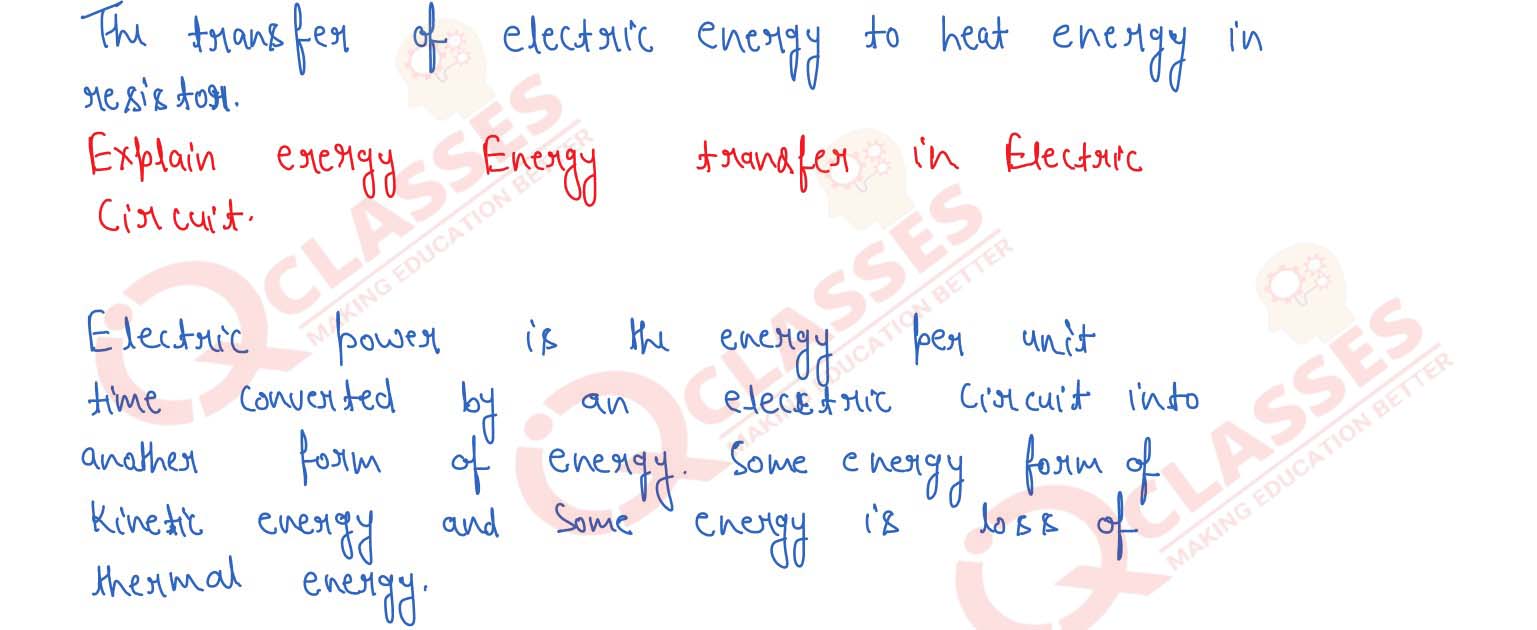 The transfer of electric energy to heat energy in
resistor.
Explain energy Energy transfer in Electric
Circuit.
Electric power is the energy per unit
time converted by an elecetric circuit into
another form of energy. Some energy form of
Kinetic energy and Some energy is loss of
thermal energy.
iQ CLASSES
MAKING EDUCATION BETTER
iQ CLASSES
MAKING EDUCATION BETTER
iQ CLASSES
MAKING EDUCATION BETTER